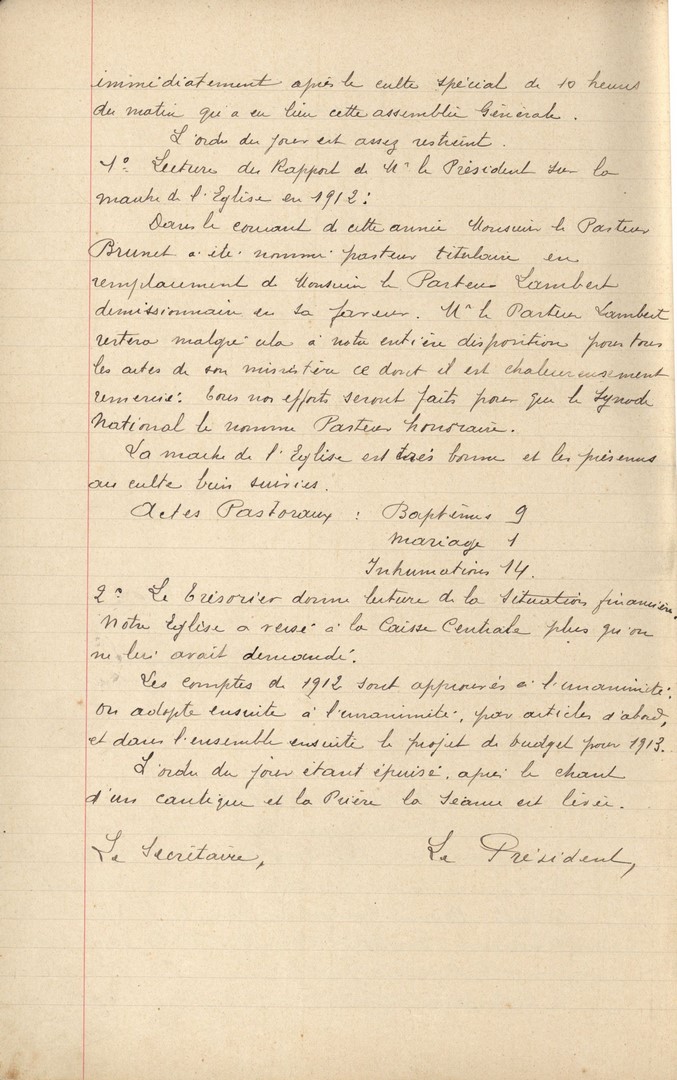 immédiatement après le culte spécial de 10 heures
du matin qu'a eu lieu cette assemblée Générale.
L'ordre du jour est assez restreint.
1° Lecture du Rapport de Mr le Président sur la
marche de l'Eglise en 1912:
Dans le courant de cette année Monsieur le Pasteur
Brunet a été nommé pasteur titulaire en
remplacement de Monsieur le Pasteur Lambert
demissionnaire en sa faveur. Mr le Pasteur Lambert
restera malgré cela à notre entière disposition pour tous
les actes de son ministère ce dont il est chaleureusement
remercié. Tous nos efforts seront faits pour que le Synode
National le nomme Pasteur honoraire.
La marche de l'Eglise est très bonne et les présences
au culte bien suivies.
Actes Pastoraux : Baptêmes 9
Mariage 1
Inhumations 14.
2° Le Trésorier donne lecture de la situation financière.
Notre Eglise a versé à la Caisse Centrale plus qu'on
ne lui avait demandé.
Les comptes de 1912 sont approuvés à l'unanimité.
On adopte ensuite à l'unanimité, par articles d'abord,
et dans l'ensemble ensuite le projet de budget pour 1913.
L'ordre du jour étant épuisé, après le chant
d'un cantique et la Prière la Séance est levée.
Le Secrétaire, Le Président,